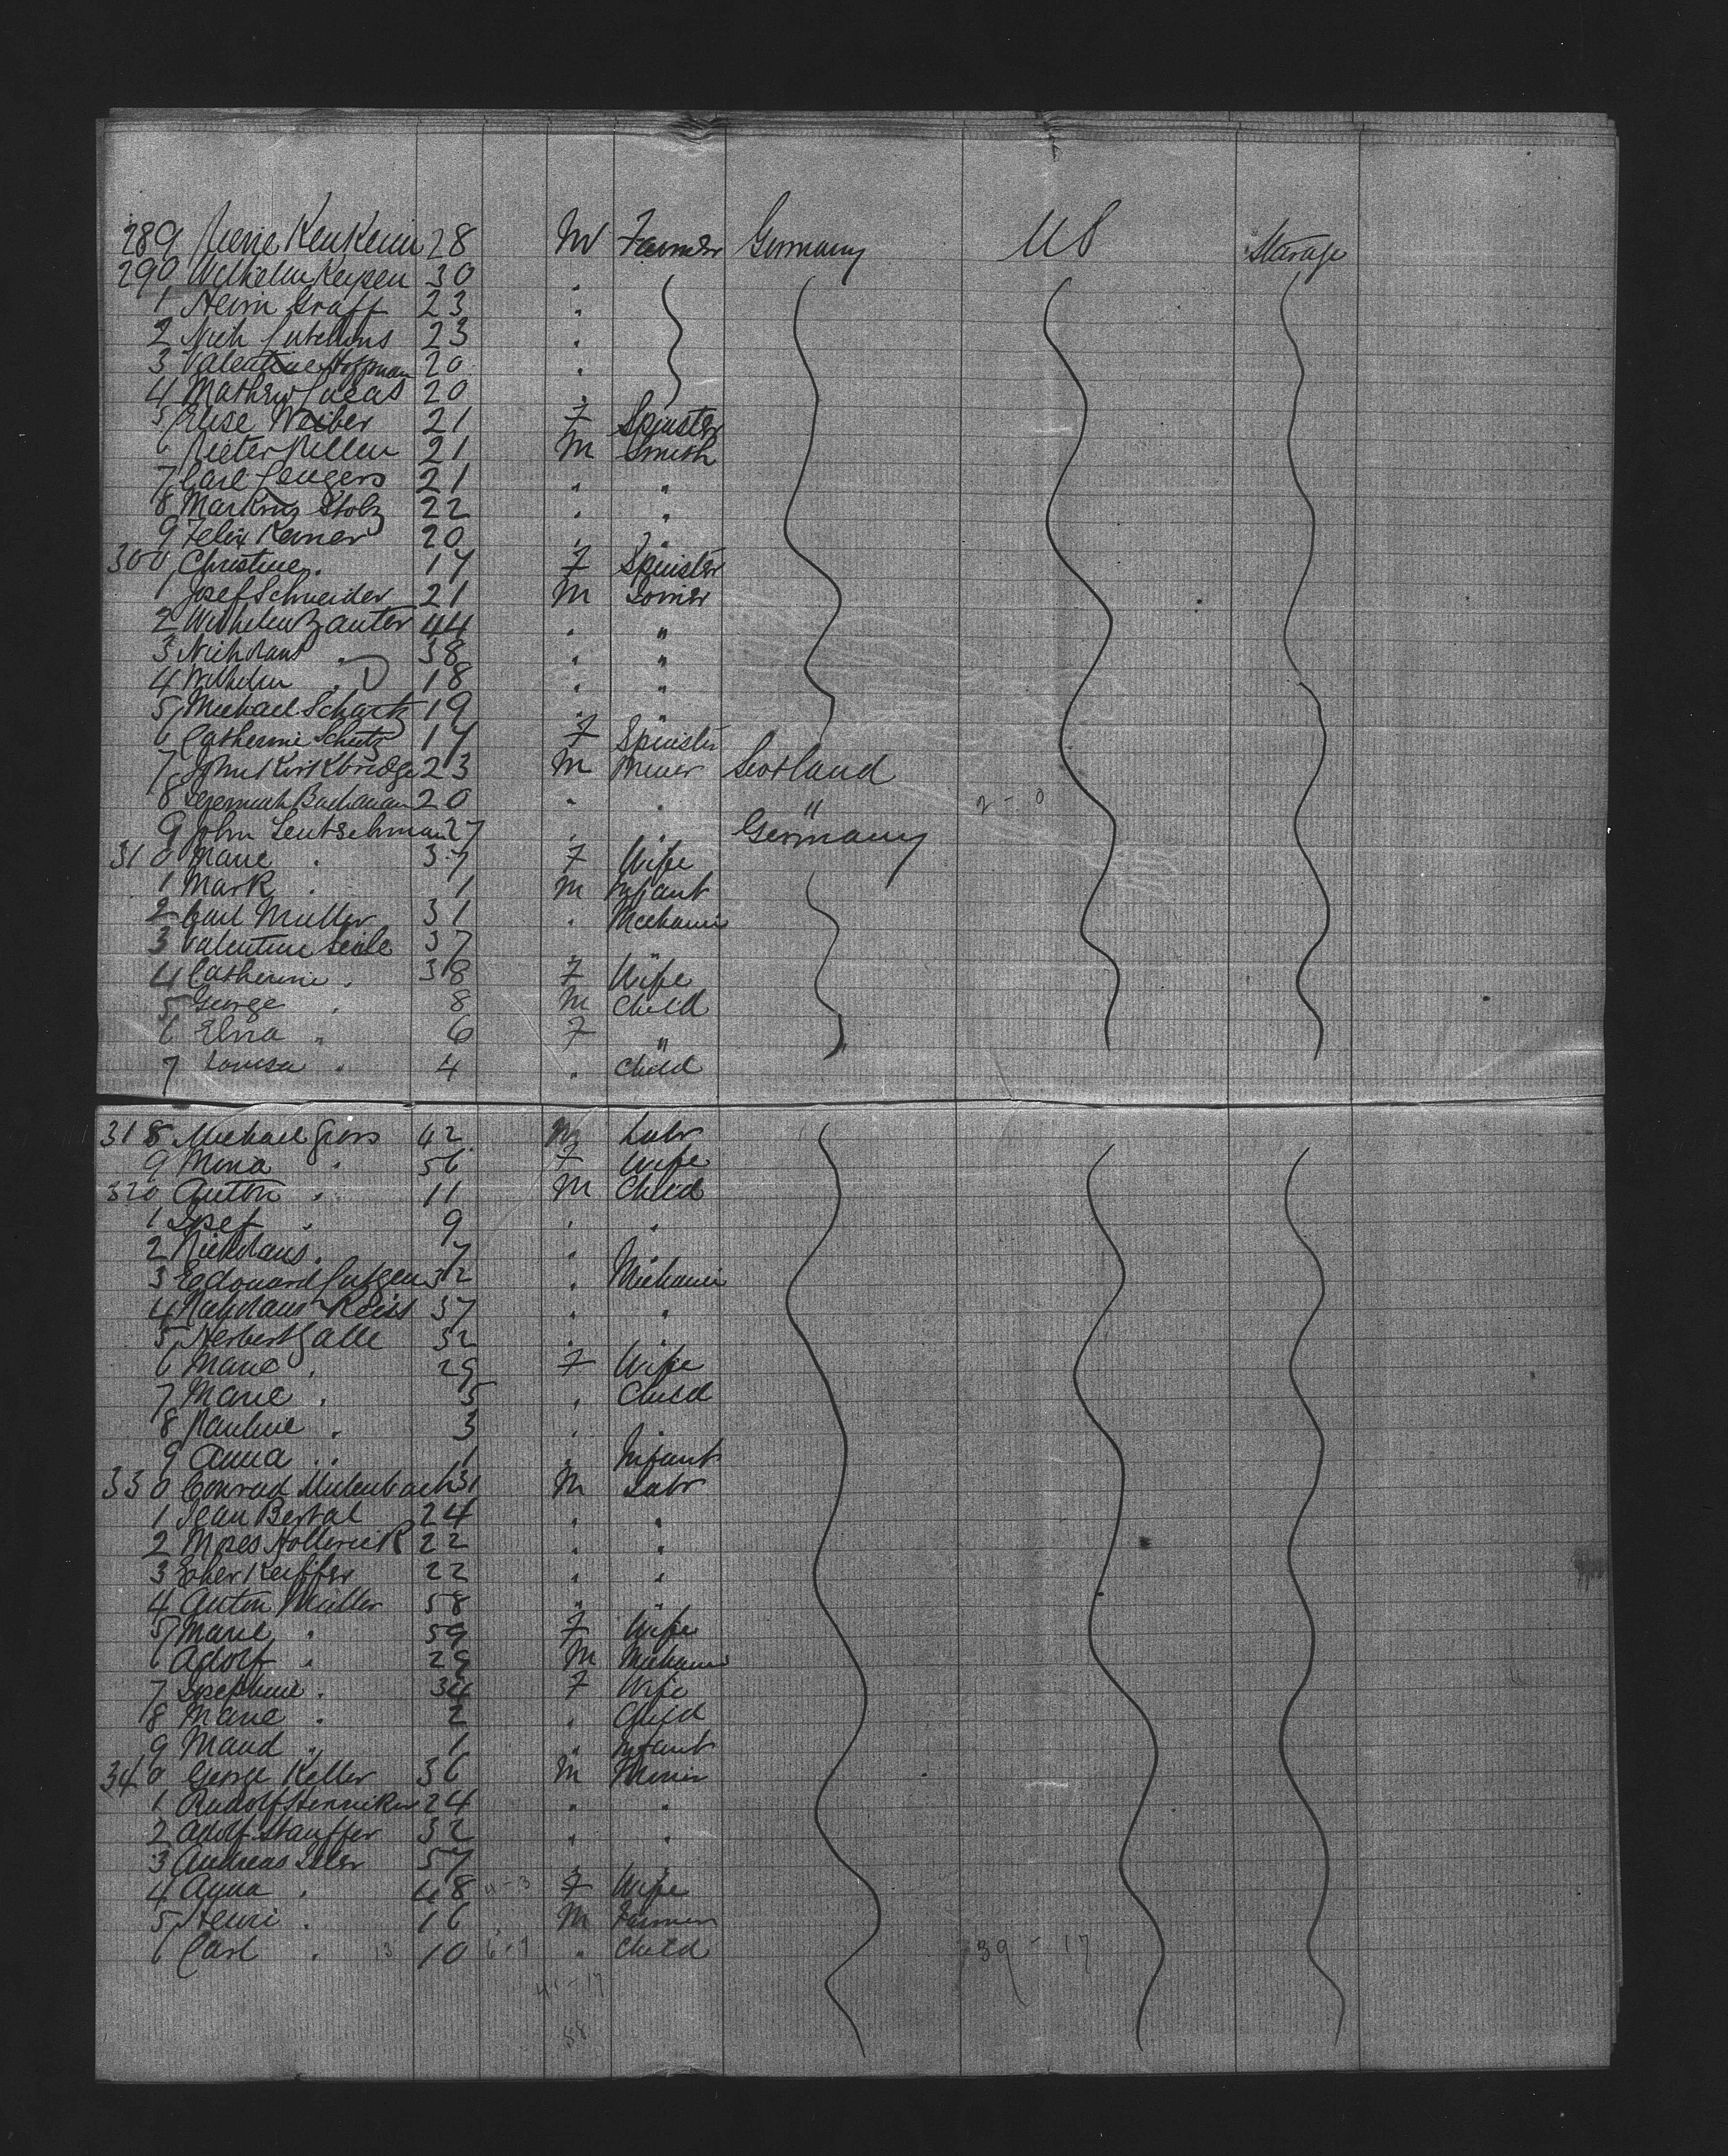 289 Pierre Kenkein 28 M Farmer Germany US Starage
290 Wilhelm Keypen 30 "
1 Heini Graff 23 "
2 Nich 23 "
3 Valentine Hoffman 20 "
4 Mathew Lucas 20 "
5 Elise Weiber 21 F Spinster
6 Pieter Pellen 21 M Smith
7 Carl Leugers 21 " "
8 Markus Stolz 22 " "
9 Felix Kerner 20 " "
300 Christine " 17 F Spinster
1 Josef Schneider 21 M
2 Wilhelm Banter 44 " "
3 Nicholaus " 38 " "
4 Wilhelm " 18 " "
5 Michael Schartz 19 " "
6 Catherine Schutz 17 F Spinster
7 John Kirkbridge 23 M Miner Scotland
8 Jeremiah Buchanan 20 " " " 2 - 0
9 John Leutschman 27 " " Germany
310 Marie " 37 F Wife
1 Mark " 1 M Infant
2 Carl Muller 31 " Mechanic
3 Valentine Seile 37
4 Catherine " 38 F Wife
5 George " 8 M Child
6 Elna " 6 F "
7 Louisa " 4 " Child
318 Michael Gross 42 M Labr
9 Mona " 56 F Wife
320 Anton " 11 M Child
1 Josef " 9 " "
2 Nicholaus " 7 "
3 Edouard 32 " Mechanic
4 Nicholaus Reiss 37 " "
5 Herbert Galle 32 "
6 Marie " 29 F Wife
7 Marie " 5 " Child
8 Pauline " 3 " "
9 Anna " 1 " Infant
330 Conrad Mulenbach 31 M Labr
1 Jean Bertal 24 " "
2 Moses Hollerick 22 " "
3 Keiffer 22 " "
4 Anton Muller 58 " "
5 Marie " 59 F Wife
6 Adolf " 29 M Mechanic
7 Josephine " 34 F Wife
8 Marie " 2 " Child
9 Maud " 1 " Infant
340 George Keller 36 M Miner
1 Rudolf Henniker 24 " "
2 Adolf Stauffer 32 " "
3 Andreas Isler 57 " "
4 Anna " 48 F Wife
5 Henri " 16 M Farmer
6 Carl " 13 10 " Child 39 - 17
41 - 17
58